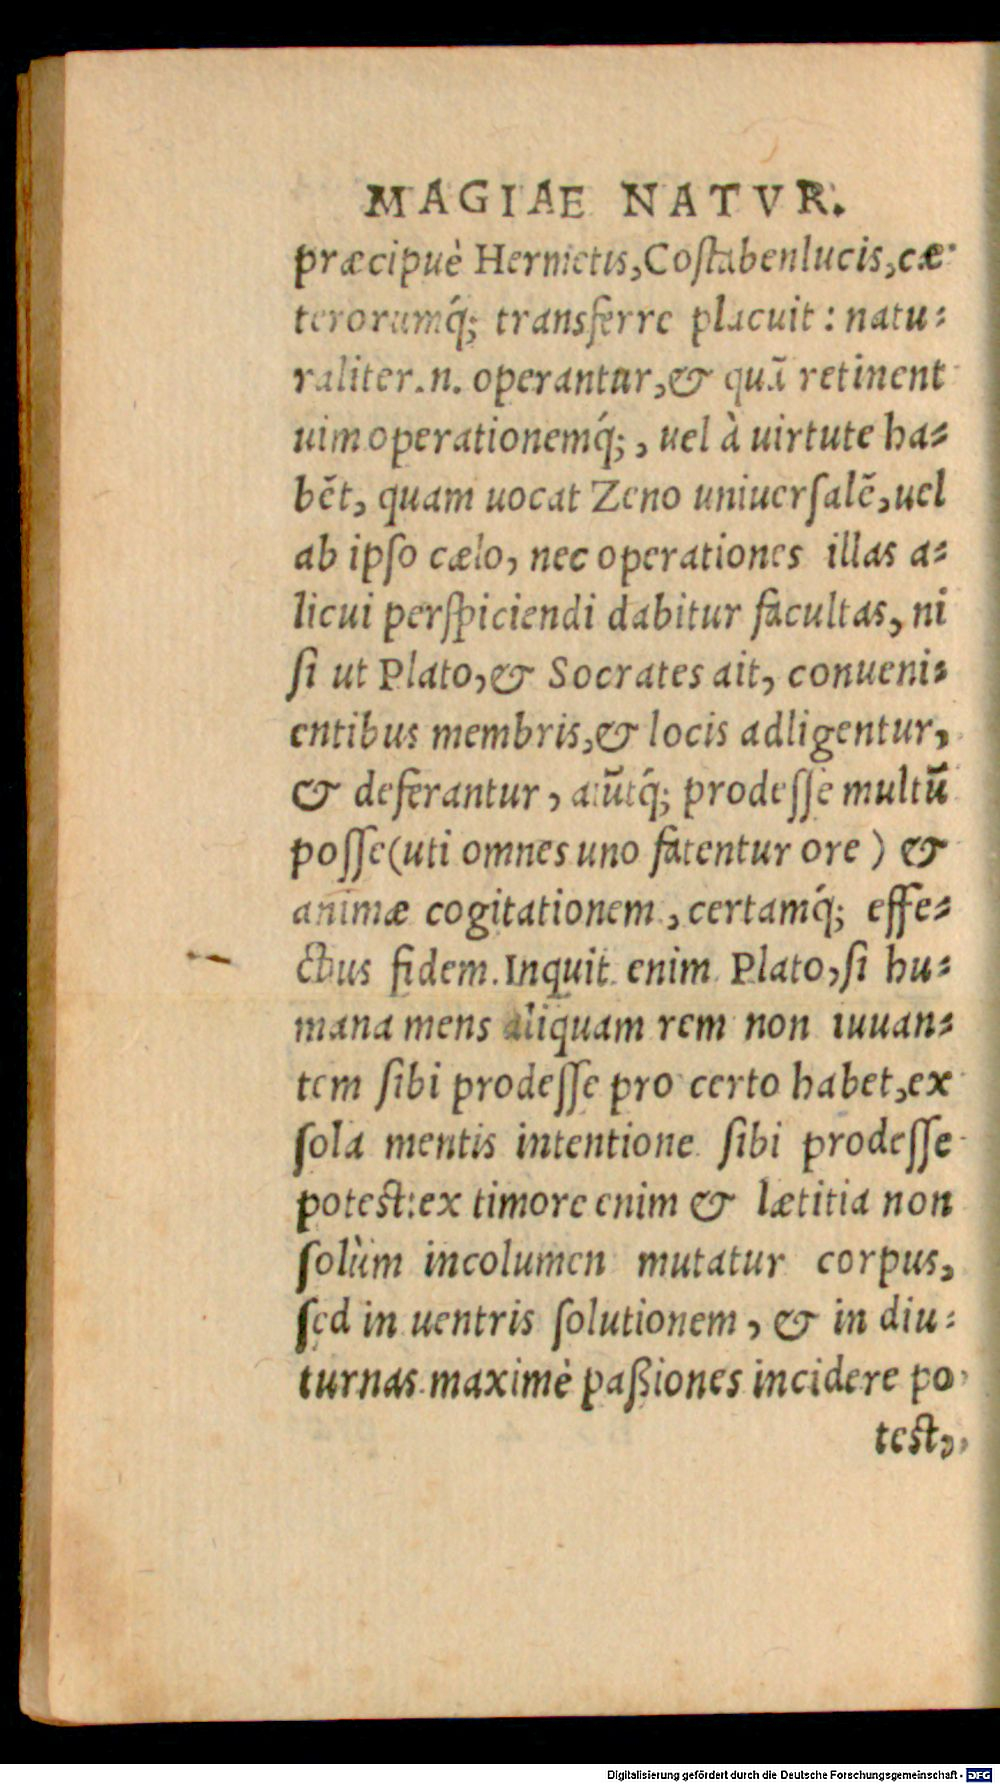 MAGIAE NATVR.
præcipuè Hermetis, Costabenlucis, cæ-
terorumq́; transferre placuit : natu-
raliter .n. operantur, & quā retinent
uim operationemq́;, uel à uirtute ha-
bēt, quam uocat Zeno uniuerſalē, uel
ab ipſo cælo, nec operationes illas a-
licui perſpiciendi dabitur facultas, ni
ſi ut Plato, & Socrates ait, conueni-
entibus membris, & locis adligentur,
& deferantur, aiūtq́; prodeſſe multū
poſſe (uti omnes uno fatentur ore) &
animæ cogitationem, certamq́; effe-
ctus fidem. Inquit enim Plato, ſi hu-
mana mens aliquam rem non iuuan-
tem ſibi prodeſſe pro certo habet, ex
ſola mentis intentione ſibi prodeſſe
potest: ex timore enim & lætitia non
ſolùm incolumen mutatur corpus,
ſed in uentris ſolutionem, & in diu-
turnas maximè paßiones incidere po
test,
Digitalisierung gefördert durch die Deutsche Forschungsgemeinschaft - DFG